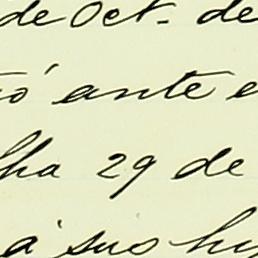 de Oct. de
ó ante e
ha 29 de
a sus hi